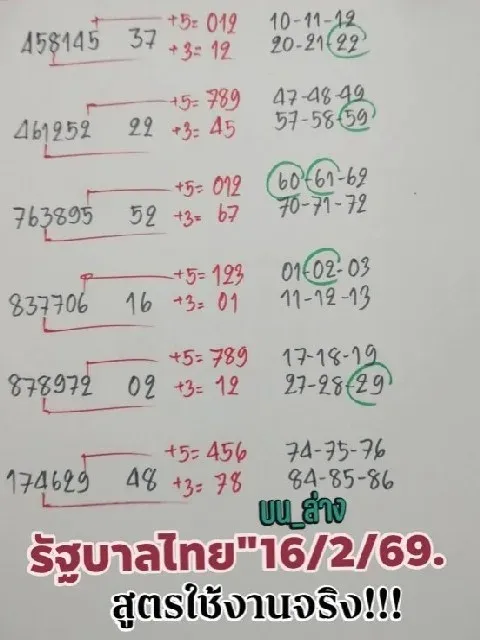 +5= 012 10-11-12
458145 37 +3= 12 20-21-22
+5= 789 47-48-49
461252 22 +3= 45 57-58-59
+5= 012 60-61-62
763895 52 +3= 67 70-71-72
+5= 123 01-02-03
837706 16 +3= 01 11-12-13
+5= 789 17-18-19
878972 02 +3= 12 27-28-29
+5= 456 74-75-76
174629 48 +3= 78 84-85-86
บน_ล่าง
รัฐบาลไทย"16/2/69.
สูตรใช้งานจริง!!!